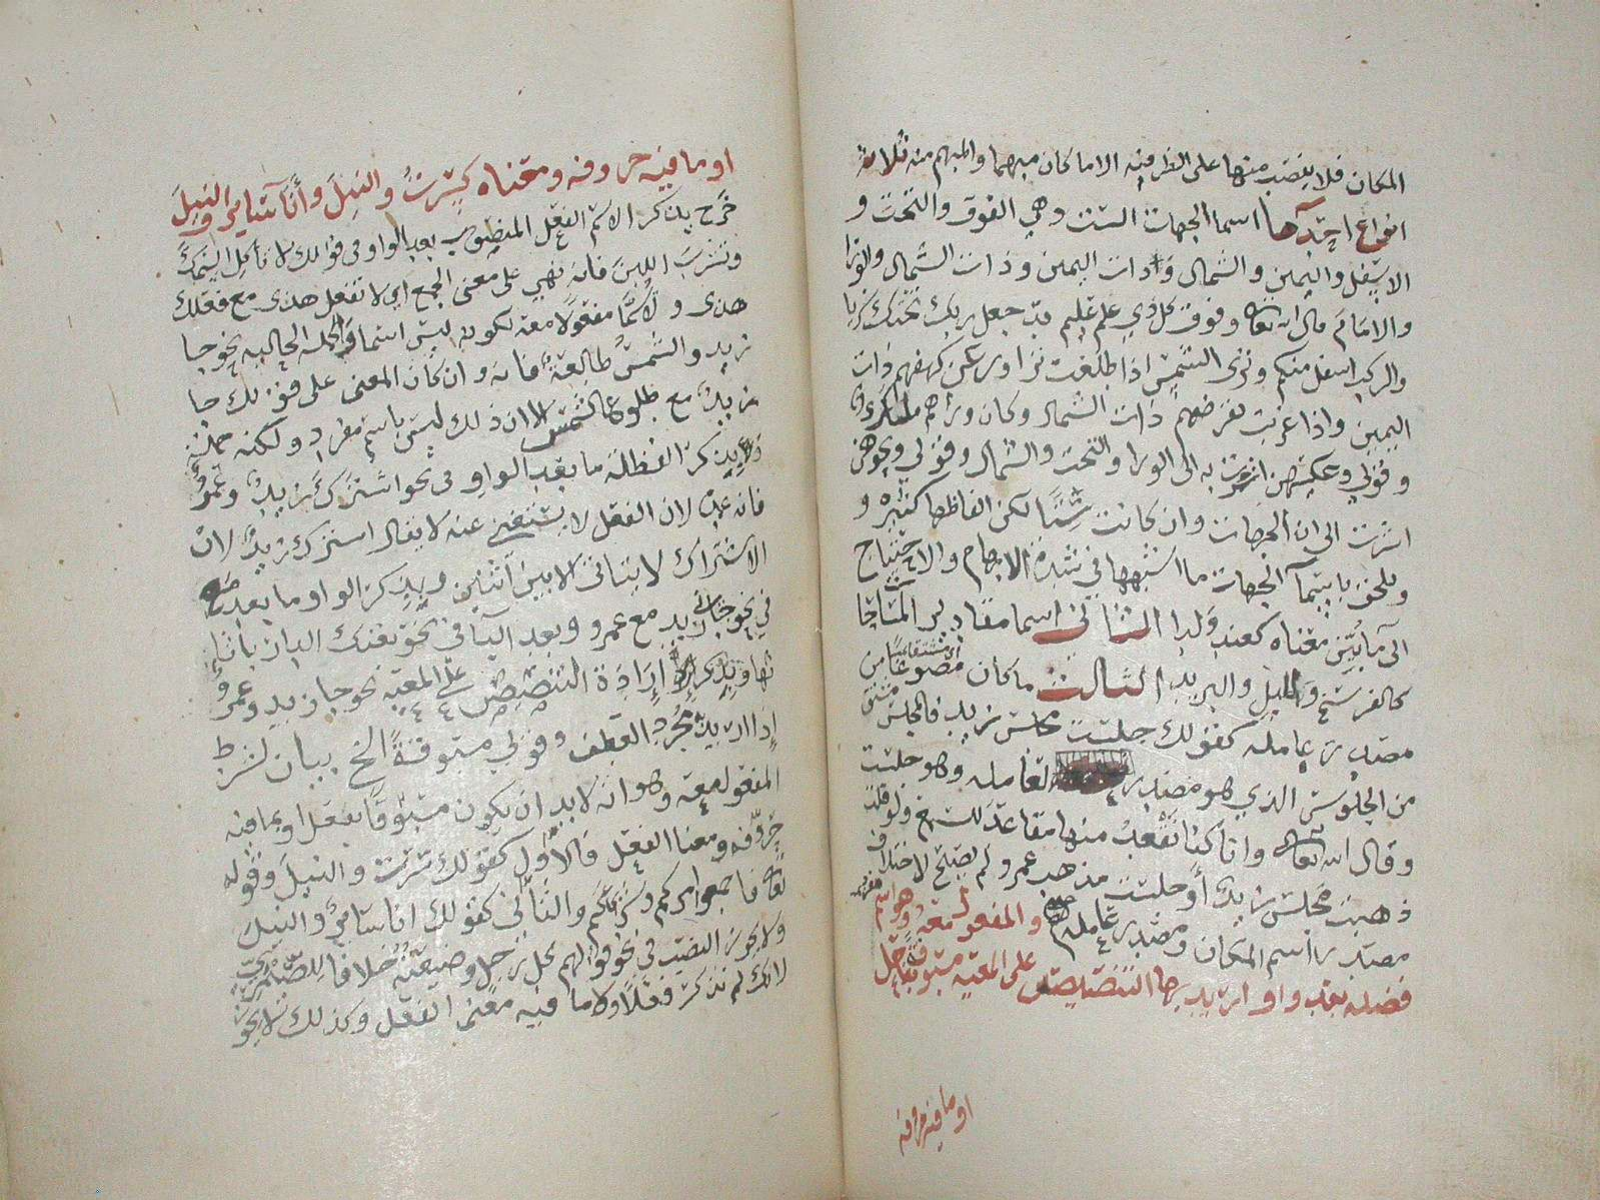 المكان فلا ينصب منها على الظرفيه الا ما كان مبهما والمبهم منه ثلاثة
انواع احدها اسما الجهات الست وهي الفوق والتحت و
الاسفل واليمين والشمال وذات اليمين وذات الشمال والورا
والامام قال الله تعالى وفوق كل ذي علم عليم قد جعل ربك تحتك سريا
والركب اسفل منكم وترى الشمس اذا طلعت تزاور عن كهفهم ذات
اليمين واذا غربت تقرضهم ذات الشمال وكان وراهم ملك
وقولي وعكسهن اشرت به الى الورا والتحت والشمال وقولي ونحوهن
اشرت الى ان الجهات وان كانت ستا لكن الفاظها كثيره و
ويلحق باسما الجهات ما اشبهها في شدة الابهام والاحتياج
الى ما يبين معناه كعند ولدا الثاني اسما مقادير المساحات
كالفرسخ والميل والبريد الثالث ما كان مصوغا من
مصدر عامله كقولك جلست مجلس زيد فالمجلس مشتق
من الجلوس الذي هو مصدر لعامله وهو جلست
وقال الله تعالى وانا كنا نقعد منها مقاعد للسمع ولو قلت
ذهبت مجلس زيد او جلست مذهب عمرو لم يصلح لاختلاف
مصدر اسم المكان ومصدر عامله والمفعول معه وهو اسم
فضلة بعد واو اريد بها التنصيص على المعيه مسبوقة بفعل
او ما فيه حروفه
او ما فيه حروفه ومعناه كسرت والنيل وانا سائر والنيل
خرج بذكر الاسم الفعل المنصوب بعد الواو في قولك لا تاكل السمك
وتشرب اللبن فانه نهي على معنى الجمع اي لا تفعل هذا مع فعلك
هذا ولا يسما مفعولا معه لكونه ليس اسما والجملة الحاليه نحو جا
زيد والشمس طالعة فانه وان كان المعنى على قولك جا
زيد مع طلوع الشمس الا ان ذلك ليس باسم مفرد ولكنه جملة
وبذكر الفضلة ما بعد الواو في نحو اشترك زيد وعمرو
فانه عمدة لان الفعل لا يستغني عنه لا يقال اشترك زيد لان
الاشتراك لا يتاتى الا بين اثنين وبذكر الواو ما بعد مع
في نحو جاني زيد مع عمرو وبعد البا في نحو بعتك الدار باثا
ثها وبذكر ارادة التنصيص على المعيه نحو جا زيد وعمرو
اذا اريد مجرد العطف وقولي مسبوقة الخ بيان لشرط
المفعول معه وهو انه لا بد ان يكون مسبوقا بفعل او بما فيه
حروفه ومعنا الفعل فالاول كقولك سرت والنيل وقوله
تعالى فاجمعوا امركم وشركاكم والثاني كقولك انا سائر والنيل
ولا يجوز النصب في نحو قولهم كل رجل وضيعته خلافا للصيمري
لانك لم تذكر فعلا ولا ما فيه معنى الفعل وكذلك لا يجوز